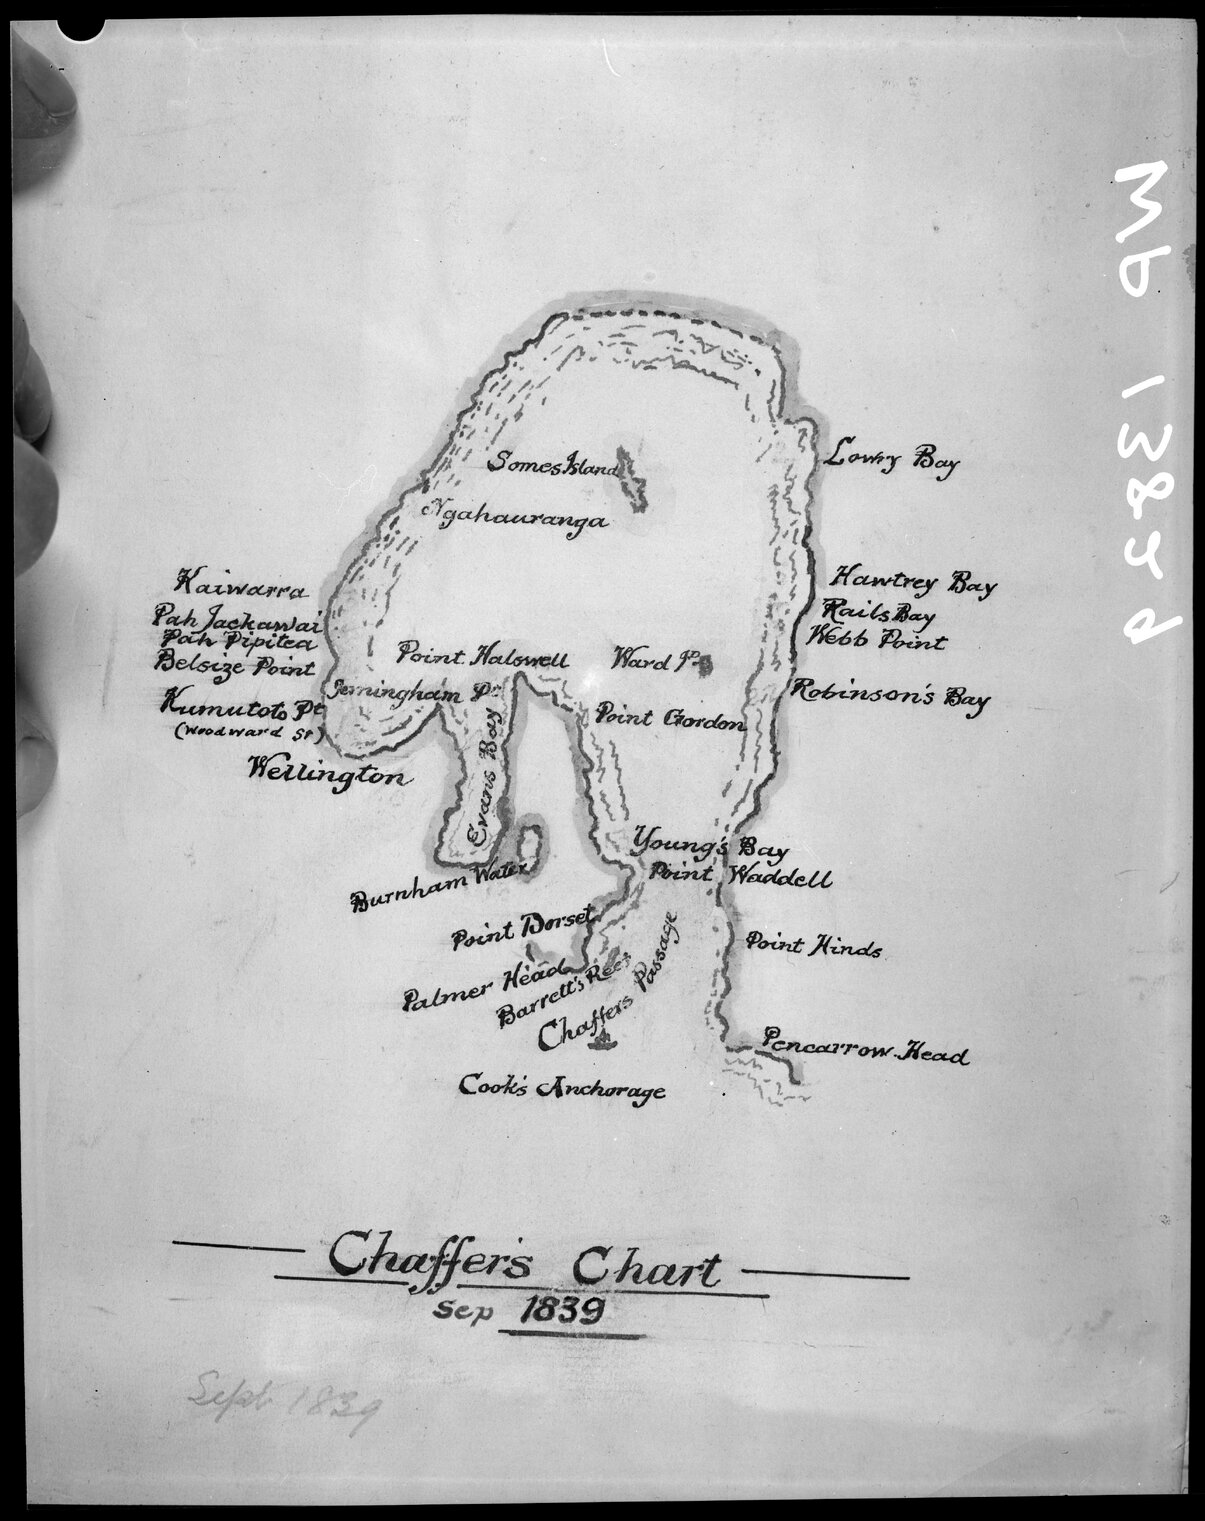 Somes Island
Lowry Bay
Ngahauranga
Kaiwarra
Hawtrey Bay
Pah Jackawai
Rails Bay
Pah Pipitea
Webb Point
Belsize Point
Point Halswell
Ward Id
Jerningham Pt
Robinson's Bay
Kumutoto Pt
(Woodward St)
Point Gordon
Wellington
Evans Bay
Young's Bay
Point Waddell
Burnham Water
Point Dorset
Point Hinds
Palmer Head
Barrett's Reef
Chaffers Passage
Pencarrow Head
Cook's Anchorage
Chaffer's Chart
Sep 1839
Sept 1839